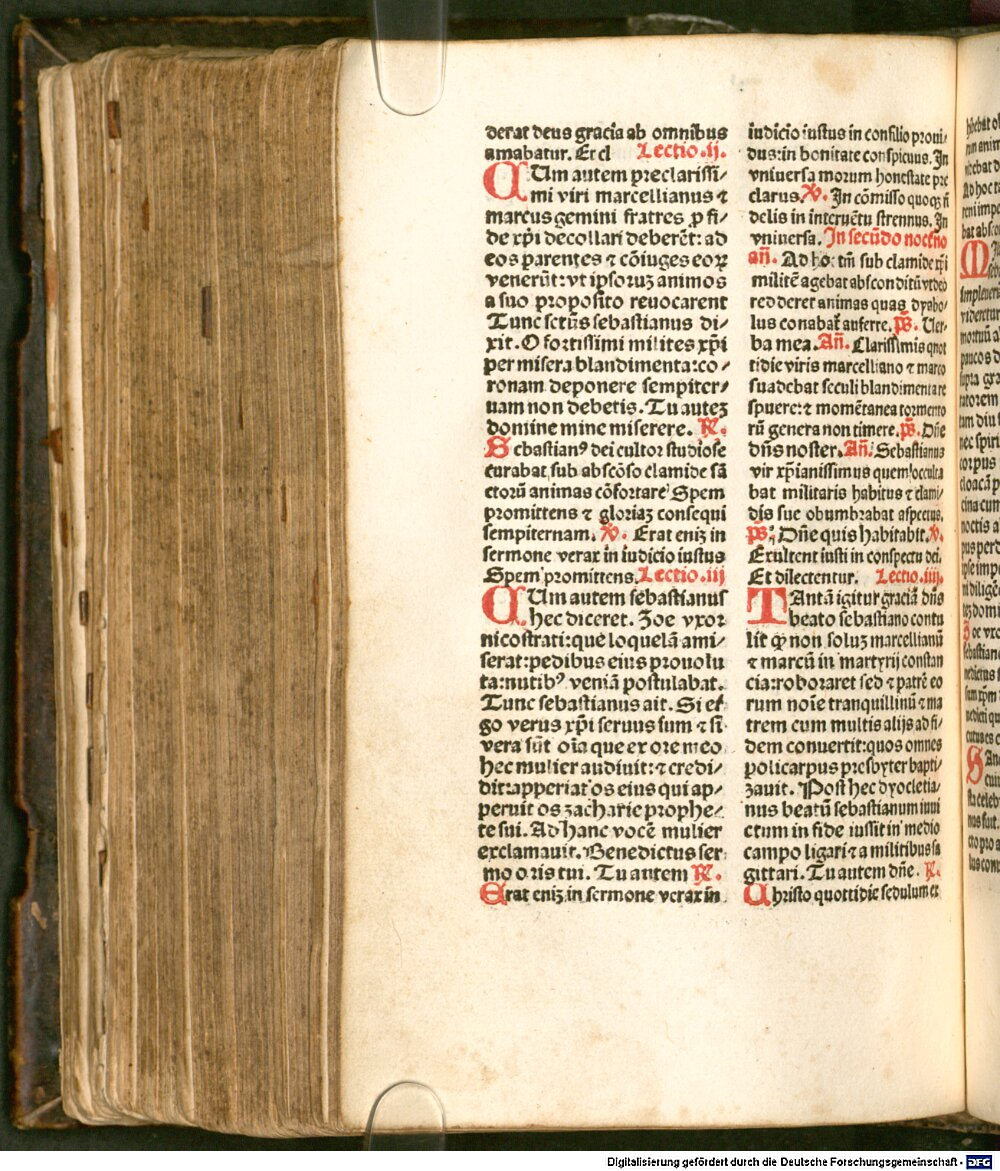 derat deus gracia ab omnibus
amabatur. Et cl Lectio .ij.
CUm autem preclarissi⸗
mi viri marcellianus ⁊
marcus gemini fratres ꝓ fi⸗
de xp̄i decollari deberēt: ad
eos parentes ⁊ cōiuges eoꝝ
venerūt: vt ipsoruꝫ animos
a suo proposito reuocarent
Tunc sctūs sebastianus di⸗
xit. O fortissimi milites xp̄i
per misera blandimenta: co⸗
ronam deponere sempiter⸗
uam non debetis. Tu auteꝫ
domine mine miserere. R̄.
Sebastianꝰ dei cultor studiose
curabat sub abscōso clamide sā
ctorū animas cōfortare Spem
promittens ⁊ gloriaꝫ consequi
sempiternam. V̄. Erat eniꝫ in
sermone verax in iudicio iustus
Spem promittens. Lectio .iij
CUm autem sebastianus
hec diceret. Zoe vxor
nicostrati: que loquelā ami⸗
serat: pedibus eius prouolu
ta: nutibꝰ veniā postulabat.
Tunc sebastianus ait. Si er
go verus xp̄i seruus sum ⁊ si
vera sūt oīa que ex ore meo
hec mulier audiuit: ⁊ credi⸗
dit: apperiat os eius qui ap⸗
peruit os zacharie prophe⸗
te sui. Ad hanc vocē mulier
exclamauit. Benedictus ser
mo oris tui. Tu autem R̄.
Erat eniꝫ in sermone verax in
iudicio iustus in consilio proui⸗
dus: in bonitate conspicuus. In
vniuersa morum honestate pre
clarus. V̄. In cōmisso quoqꝫ fi
delis in interuētu strennus. In
vniuersa. In secūdo nocturno
an̄. Ad hoc tm̄ sub clamide xp̄i
militē agebat absconditū vt deo
red deret animas quas dyabo⸗
lus conabat᷑ auferre. ps̄. Uer⸗
ba mea. An̄. Clarissimis quot
tidie viris marcelliano ⁊ marco
suadebat seculi blandimenta re
spuere: ⁊ momētanea tormento
rū genera non timere. ps̄. Dn̄e
dn̄s noster. An̄. Sebastianus
vir xp̄ianissimus quem occulta
bat militaris habitus ⁊ clami⸗
dis sue obumbrabat aspectus.
ps̄. Dn̄e quis habitabit. V̄.
Exultent iusti in conspectu dei.
Et dilectentur. Lectio .iiij.
TAntā igitur graciā dn̄s
beato sebastiano contu
lit ꝙ non soluꝫ marcellianū
⁊ marcū in martyrij constan
cia: roboraret sed ⁊ patrē eo
rum noīe tranquillinū ⁊ ma
trem cum multis alijs ad fi⸗
dem conuertit: quos omnes
policarpus presbyter bapti⸗
zauit. Post hec dyocletia⸗
nus beatū sebastianum inui
ctum in fide iussit in medio
campo ligari ⁊ a militibus sa
gittari. Tu autem dn̄e. R̄.
Christo quottidie sedulum ex
Digitalisierung gefördert durch die Deutsche Forschungsgemeinschaft - DFG